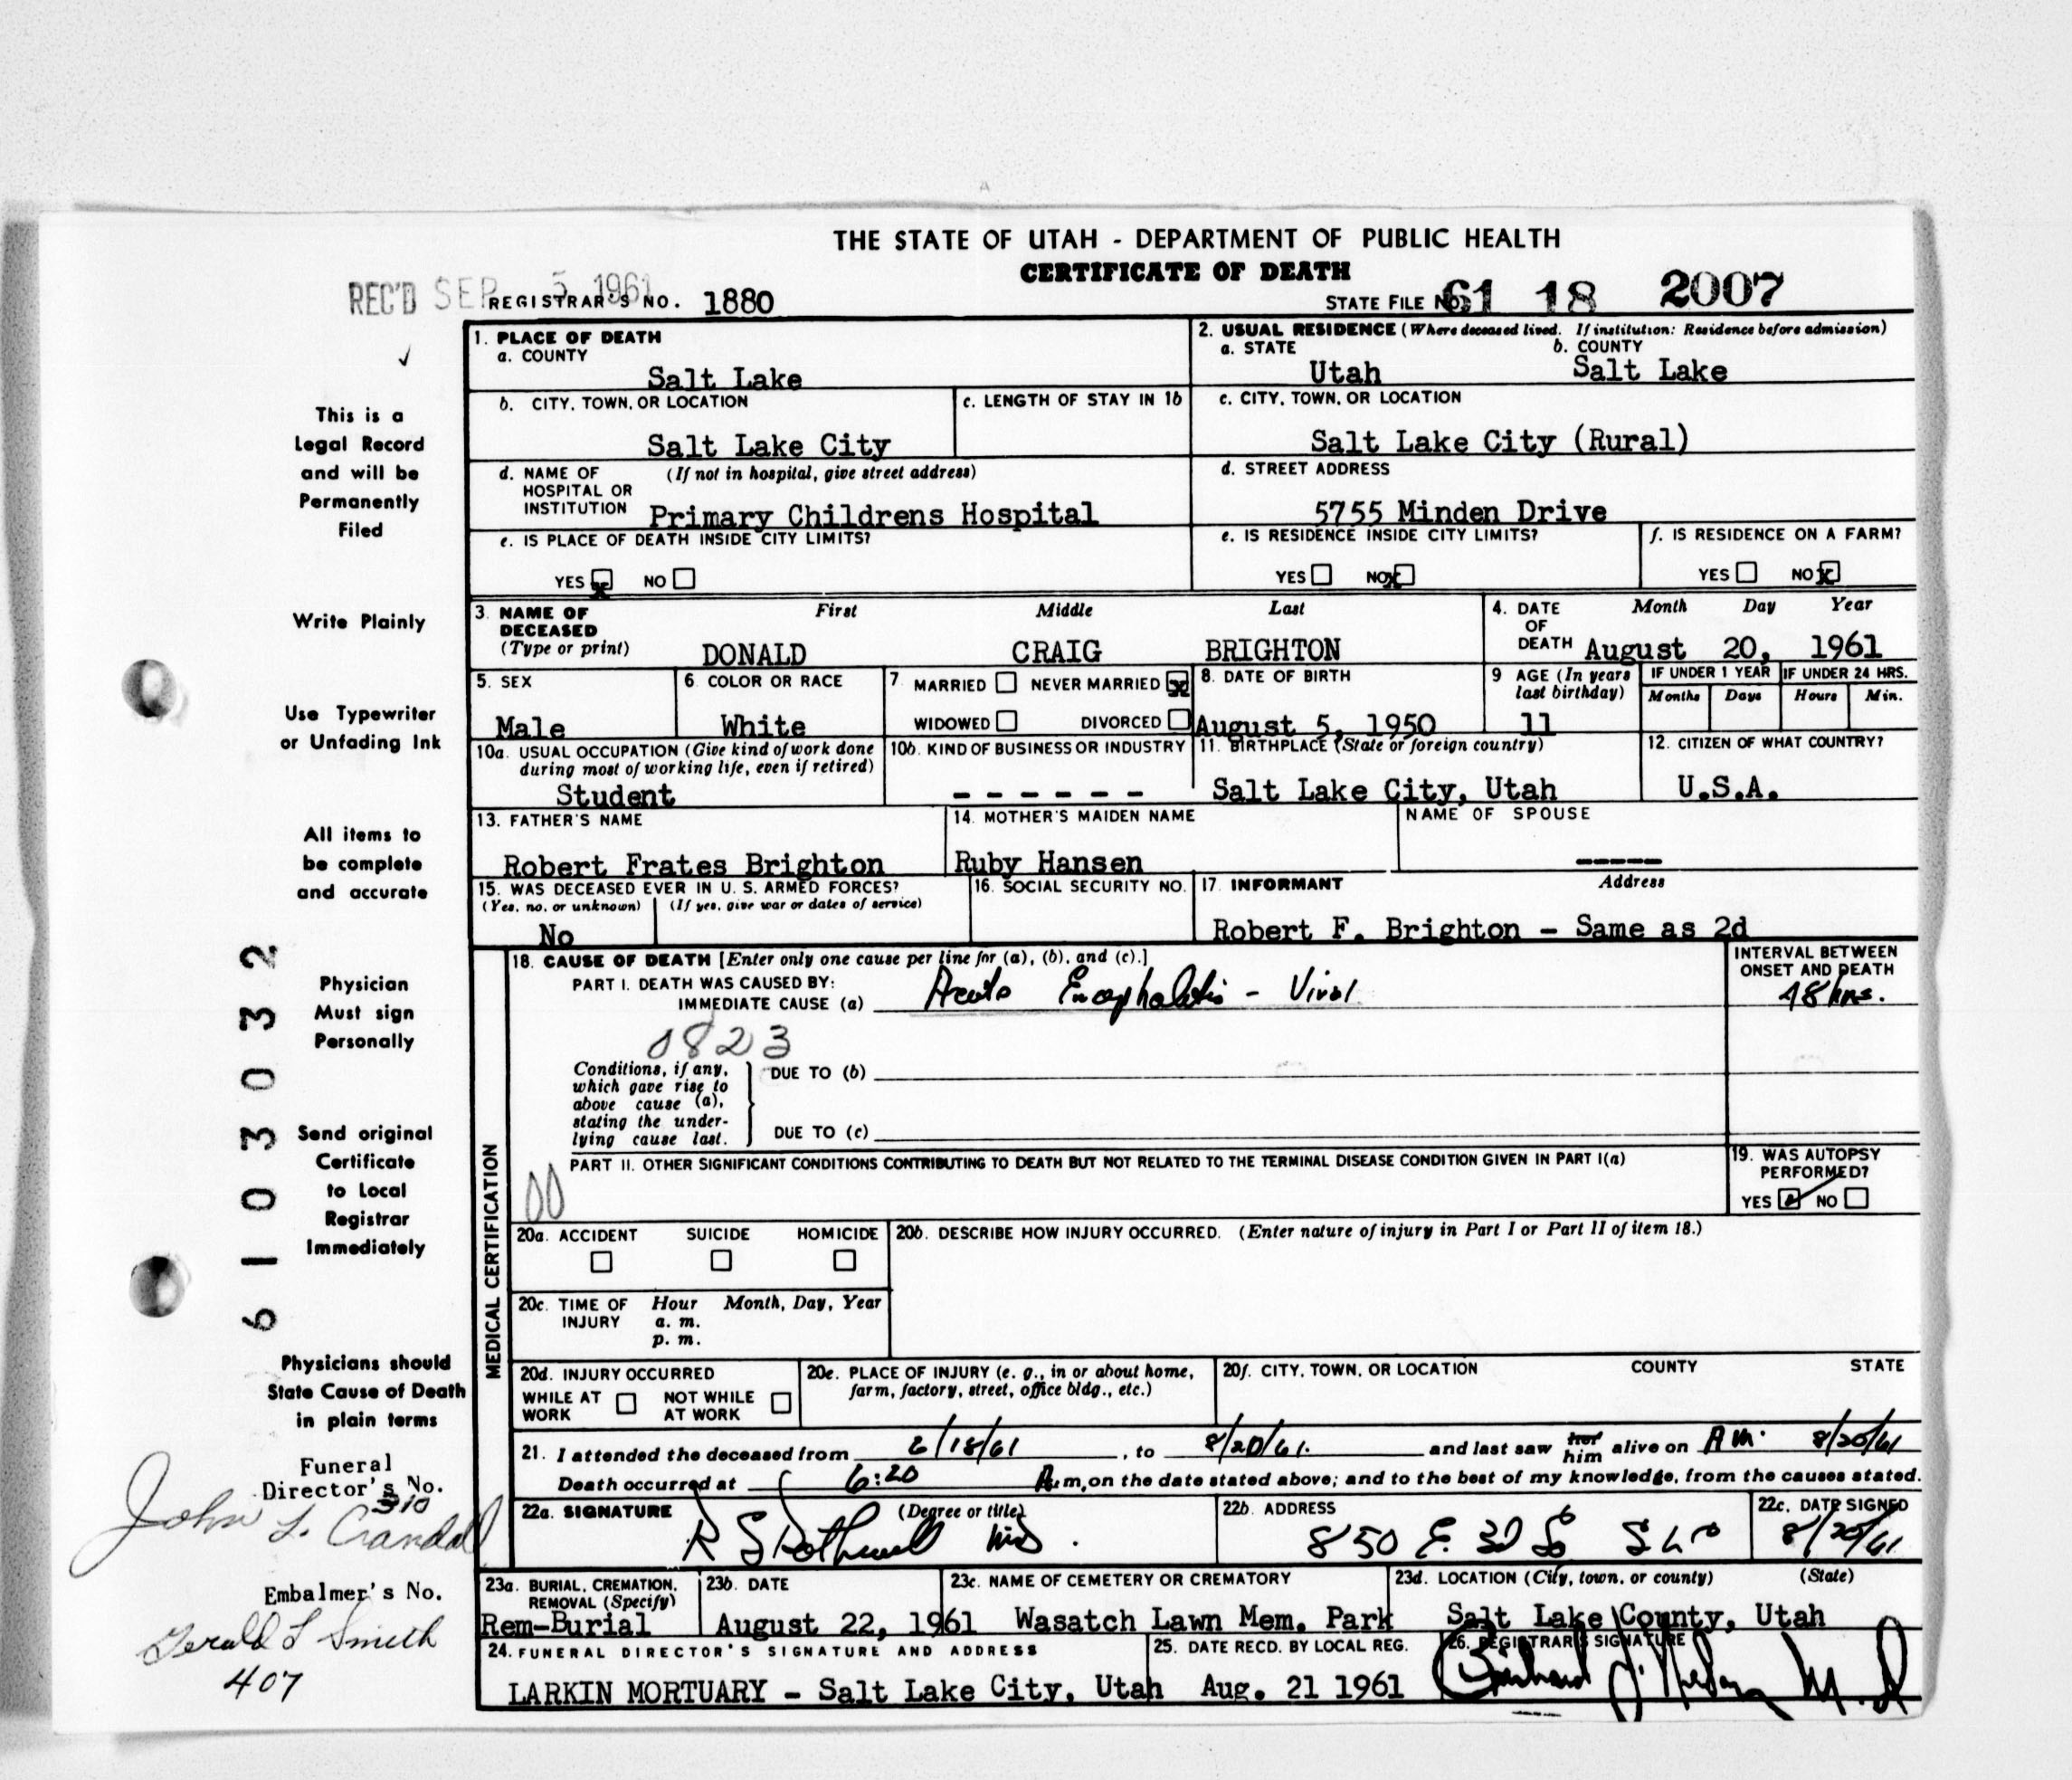 THE STATE OF UTAH - DEPARTMENT OF PUBLIC HEALTH
CERTIFICATE OF DEATH
REC'D SEP 5 1961
REGISTRAR'S NO. 1880
STATE FILE NO. 61 18 2007
1. PLACE OF DEATH
a. COUNTY
Salt Lake
2. USUAL RESIDENCE (Where deceased lived. If institution: Residence before admission)
a. STATE b. COUNTY
Utah Salt Lake
b. CITY, TOWN, OR LOCATION
Salt Lake City
c. LENGTH OF STAY IN 1b
c. CITY, TOWN, OR LOCATION
Salt Lake City (Rural)
d. NAME OF HOSPITAL OR INSTITUTION (If not in hospital, give street address)
Primary Childrens Hospital
d. STREET ADDRESS
5755 Minden Drive
e. IS PLACE OF DEATH INSIDE CITY LIMITS?
YES x NO
e. IS RESIDENCE INSIDE CITY LIMITS?
YES NO x
f. IS RESIDENCE ON A FARM?
YES NO x
3. NAME OF DECEASED (Type or print)
First Middle Last
DONALD CRAIG BRIGHTON
4. DATE OF DEATH Month Day Year
August 20, 1961
5. SEX
Male
6. COLOR OR RACE
White
7. MARRIED NEVER MARRIED x
WIDOWED DIVORCED
8. DATE OF BIRTH
August 5, 1950
9 AGE (In years last birthday)
11
IF UNDER 1 YEAR
Months Days
IF UNDER 24 HRS.
Hours Min.
10a. USUAL OCCUPATION (Give kind of work done during most of working life, even if retired)
Student
10b. KIND OF BUSINESS OR INDUSTRY
- - - - - -
11. BIRTHPLACE (State or foreign country)
Salt Lake City, Utah
12. CITIZEN OF WHAT COUNTRY?
U.S.A.
13. FATHER'S NAME
Robert Frates Brighton
14. MOTHER'S MAIDEN NAME
Ruby Hansen
NAME OF SPOUSE
-----
15. WAS DECEASED EVER IN U. S. ARMED FORCES?
(Yes, no, or unknown) (If yes, give war or dates of service)
No
16. SOCIAL SECURITY NO.
17. INFORMANT Address
Robert F. Brighton - Same as 2d
MEDICAL CERTIFICATION
18. CAUSE OF DEATH [Enter only one cause per line for (a), (b), and (c).]
PART I. DEATH WAS CAUSED BY:
IMMEDIATE CAUSE (a) Acute Encephalitis - Viral
INTERVAL BETWEEN ONSET AND DEATH
48 hrs.
0823
Conditions, if any, which gave rise to above cause (a), stating the underlying cause last.
DUE TO (b)
DUE TO (c)
PART II. OTHER SIGNIFICANT CONDITIONS CONTRIBUTING TO DEATH BUT NOT RELATED TO THE TERMINAL DISEASE CONDITION GIVEN IN PART I(a)
00
19. WAS AUTOPSY PERFORMED?
YES NO
20a. ACCIDENT SUICIDE HOMICIDE
20b. DESCRIBE HOW INJURY OCCURRED. (Enter nature of injury in Part I or Part II of item 18.)
20c. TIME OF INJURY Hour Month, Day, Year
a. m.
p. m.
20d. INJURY OCCURRED
WHILE AT WORK NOT WHILE AT WORK
20e. PLACE OF INJURY (e. g., in or about home, farm, factory, street, office bldg., etc.)
20f. CITY, TOWN, OR LOCATION COUNTY STATE
21. I attended the deceased from /18/61, to 8/20/61. and last saw her him alive on AM. 8/20/61
Death occurred at 6:20 A.m, on the date stated above; and to the best of my knowledge, from the causes stated.
22a. SIGNATURE (Degree or title)
R S Rothwell MD.
22b. ADDRESS
850 E. 3d So SLC
22c. DATE SIGNED
8/20/61
23a. BURIAL, CREMATION, REMOVAL (Specify)
Rem-Burial
23b. DATE
August 22, 1961
23c. NAME OF CEMETERY OR CREMATORY
Wasatch Lawn Mem. Park
23d. LOCATION (City, town, or county) (State)
Salt Lake County, Utah
24. FUNERAL DIRECTOR'S SIGNATURE AND ADDRESS
LARKIN MORTUARY - Salt Lake City, Utah
25. DATE RECD. BY LOCAL REG.
Aug. 21 1961
26. REGISTRAR'S SIGNATURE
M.D
This is a
Legal Record
and will be
Permanently
Filed
Write Plainly
Use Typewriter
or Unfading Ink
All items to
be complete
and accurate
Physician
Must sign
Personally
Send original
Certificate
to Local
Registrar
Immediately
Physicians should
State Cause of Death
in plain terms
Funeral
Director's No.
310
John L. Crandall
Embalmer's No.
Gerald L Smith
407
6103032